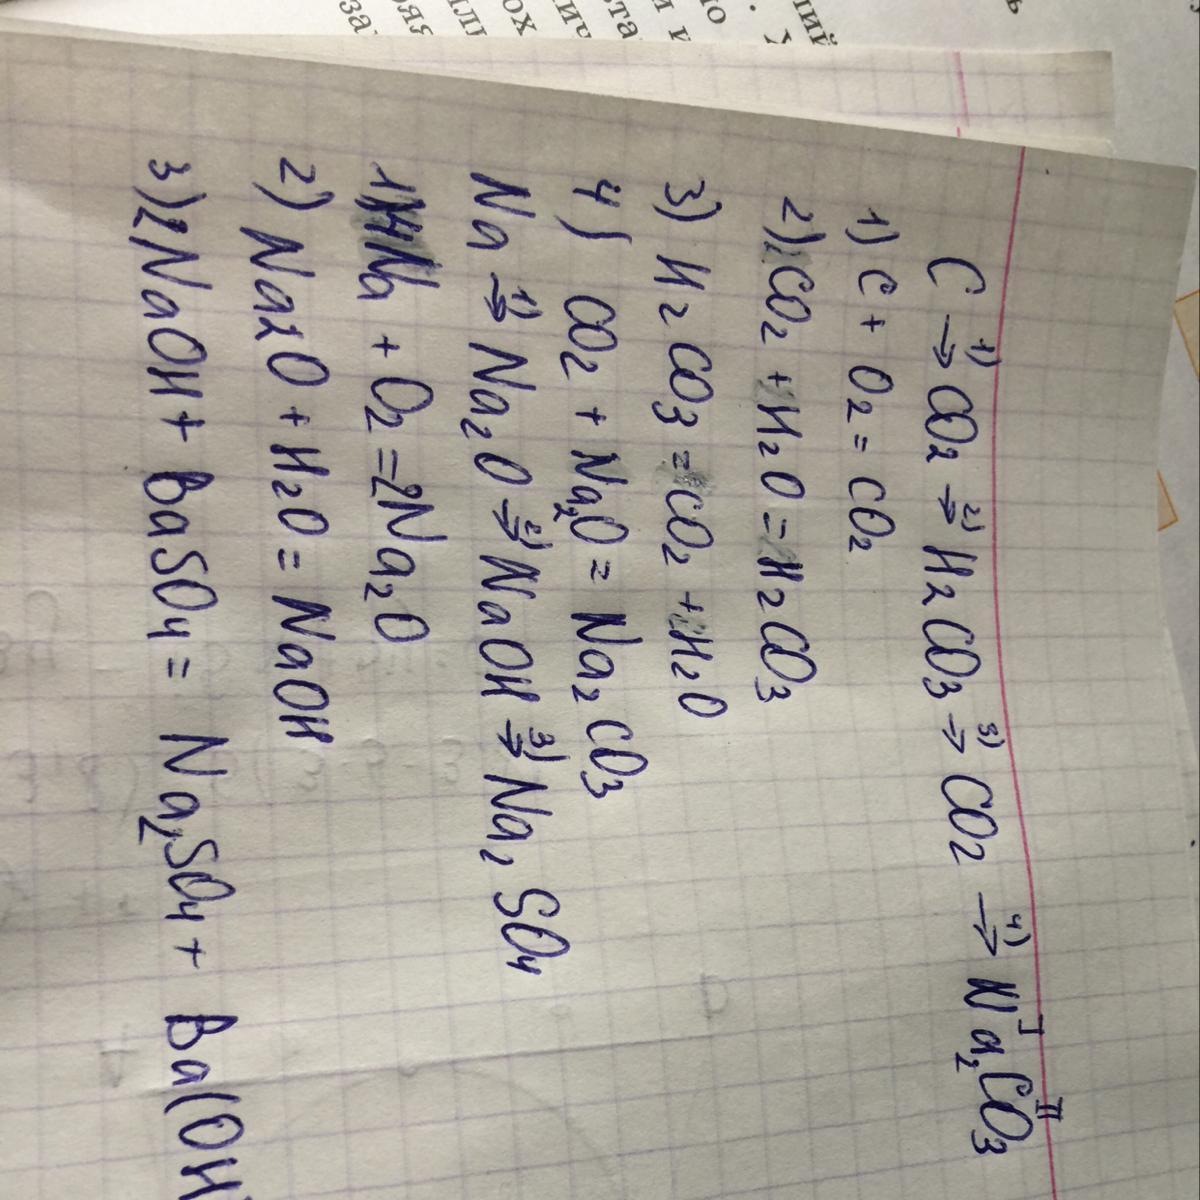 C →¹⁾ CO₂ →²⁾ H₂CO₃ →³⁾ CO₂ →⁴⁾ Naᴵ₂CO₃ᴵᴵ
1) C + O₂ = CO₂
2) CO₂ + H₂O = H₂CO₃
3) H₂CO₃ = CO₂ + H₂O
4) CO₂ + Na₂O = Na₂CO₃
Na →¹⁾ Na₂O →²⁾ NaOH →³⁾ Na₂SO₄
1) 4Na + O₂ = 2Na₂O
2) Na₂O + H₂O = NaOH
3) 2NaOH + BaSO₄ = Na₂SO₄ + Ba(OH